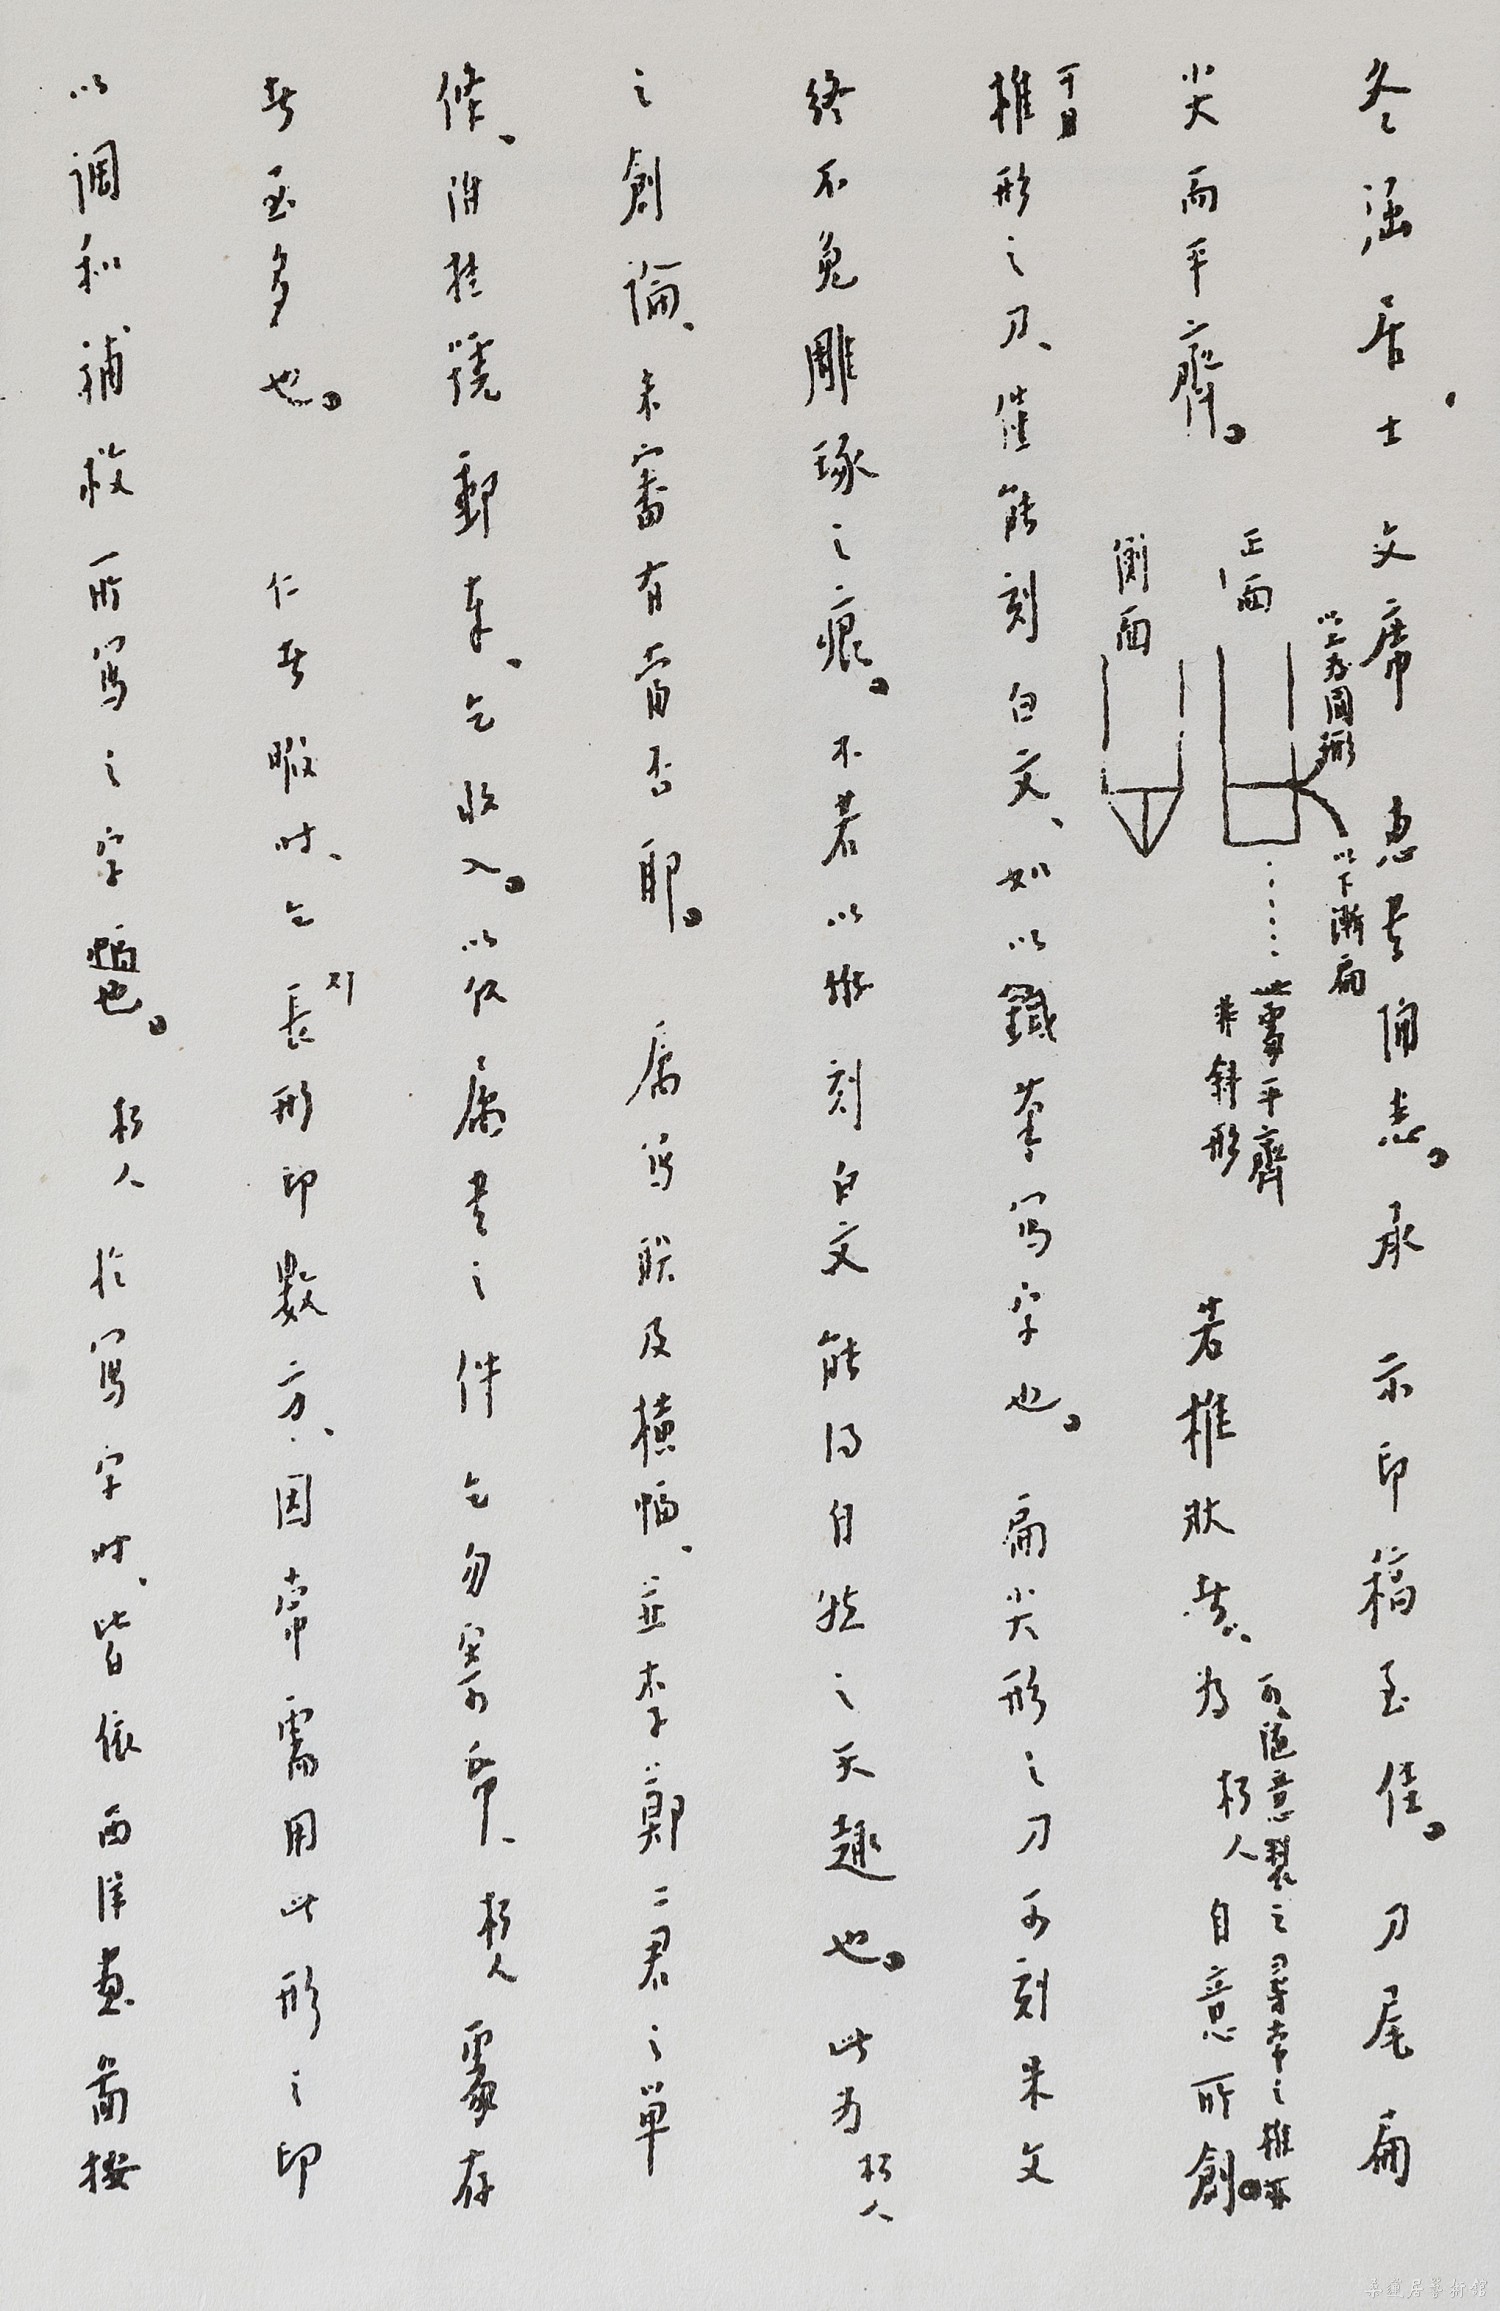 冬涵居士文席 惠書誦悉。承 示印稿至佳。刀尾扁
尖而平齊。
正面
側面
以上為圓形
以下漸扁
此處平齊
非斜形
若椎狀者、為朽人自意所創。
可隨意製之尋常之椎亦
可用
椎形之刀、僅能刻白文、如以鐵筆寫字也。扁尖形之刀可刻朱文
終不免雕琢之痕。不若以椎刻白文能得自然之天趣也。此為朽人
之創論、未審有當否耶。 屬寫聯及橫幅、並李鄭二君之單
條、附挂號郵奉、乞收入。以後屬書之件乞勿寄帋、朽人處存
者至多也。 仁者暇時、乞刻長形印數方、因常需用此形之印
以調和補救所寫之字幅也。朽人於寫字時、皆依西洋畫啚按